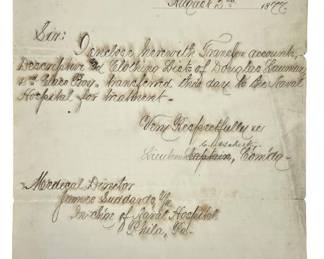 August 2nd 1877.
Sir:
I enclose herewith Transfer account,
Descriptive and Clothing Lists of Douglas
Boy. transferred this day to the Naval
Hospital for treatment.
Very Respectfully
Lieutenant Captain, Com'dg.
Medical Director
James Suddards
In-charge of Naval Hospital
Phila, Pa.